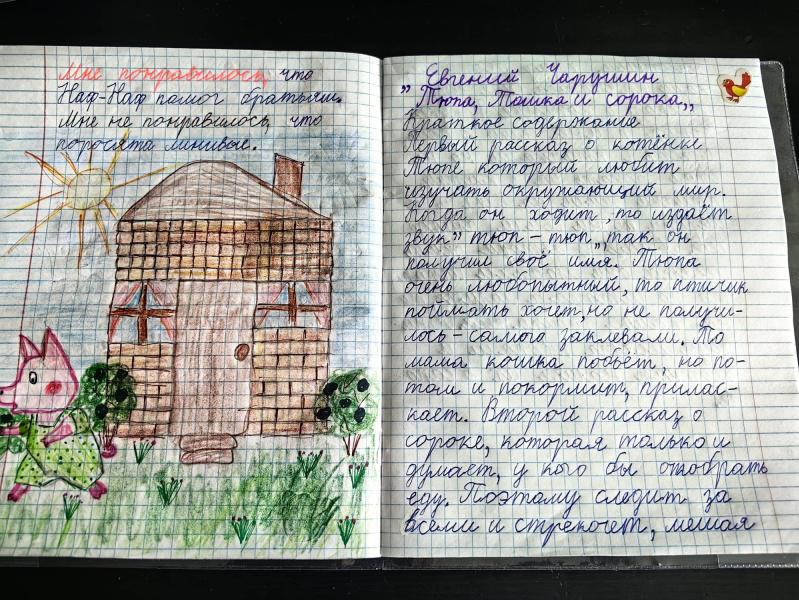 Мне понравилось, что
Наф-Наф помог братьям.
Мне не понравилось, что
поросята линивые.
Евгений Чарушин
"Тюпа, Томка и сорока"
Краткое содержание
Первый рассказ о котёнке
Тюпе который любит
изучать окружающий мир.
Когда он ходит, то издаёт
звук "тюп-тюп", так он
получил своё имя. Тюпа
очень любопытный, то птичик
поймать хочет, но не получи-
лось - самого заклевали. То
мама кошка побьёт, но по-
том и покормит, прилас-
кает. Второй рассказ о
сороке, которая только и
думает, у кого бы отобрать
еду. Поэтому следит за
всеми и стрекочет, мешая